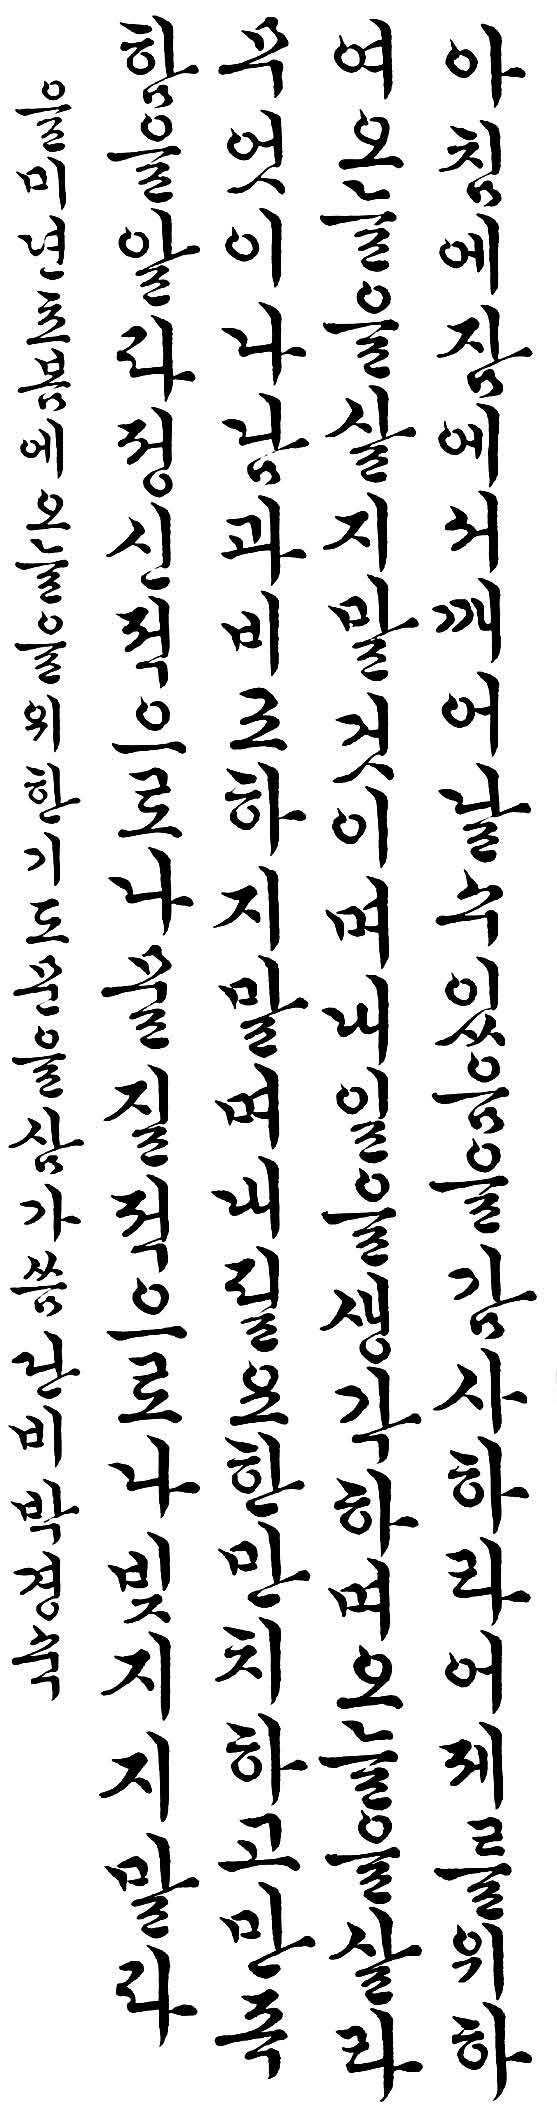 아침에 잠에서 깨어날 수 있음을 감사하라 어제를 위하
여 오늘을 살지 말 것이며 내일을 생각하며 오늘을 살라
무엇이나 남과 비교하지 말며 내 필요한 만치하고 만족
함을 알라 정신적으로나 물질적으로나 빚지지 말라
을미년 초봄에 오늘을 위한 기도문을 삼가 씀 난비 박경숙